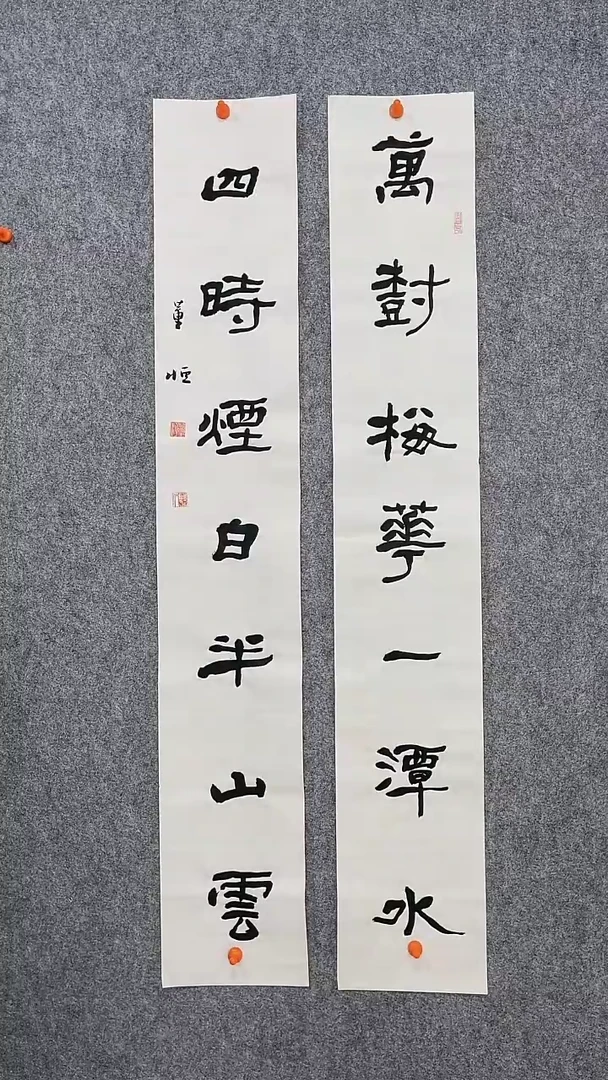 萬樹梅華一潭水
四時煙白半山雲
董恒